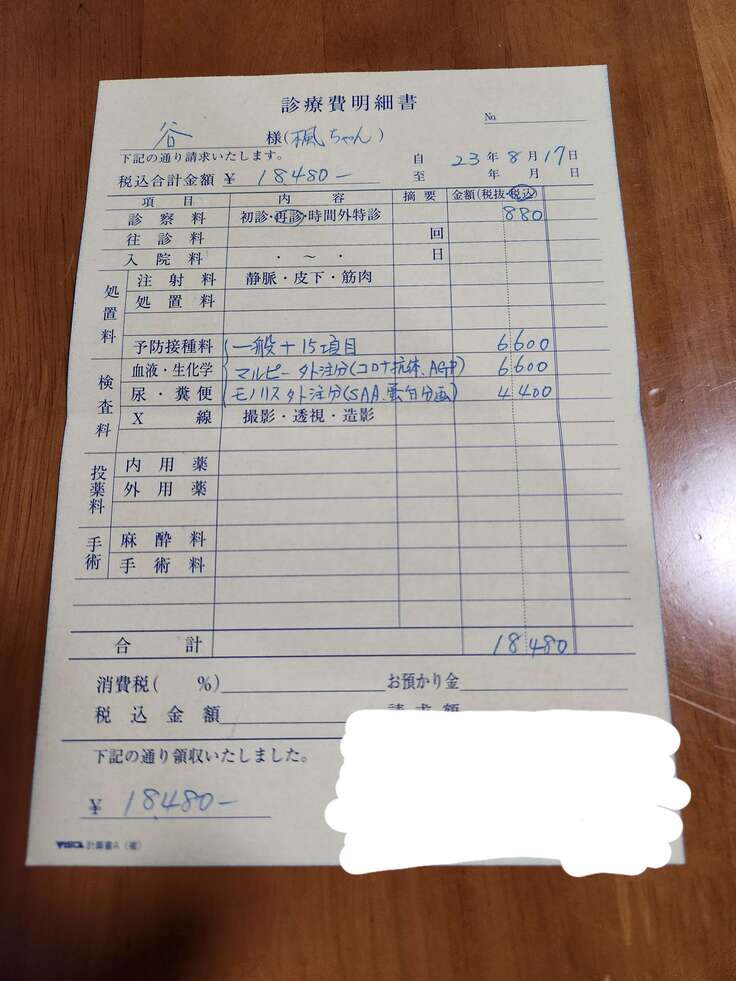 診療費明細書
No
谷 様(楓ちゃん)
下記の通り請求いたします。
自 23年8月17日
税込合計金額 ¥ 18,480-
至 年 月 日
項目 内容 摘要 金額(税抜・税込)
診察料 初診・再診・時間外特診 880
往診料 回
入院料 ・ ~ ・ 日
処置料 注射料 静脈・皮下・筋肉
処置料
予防接種料 一般+15項目 6600
検査料 血液・生化学 マルピー外注分(コロナ抗体、AGP) 6600
尿・糞便 モノリス外注分(SAA、蛋白分画) 4400
X線 撮影・透視・造影
投薬料 内用薬
外用薬
手術 麻酔料
手術料
合計 18480
消費税( %) お預かり金
税込金額 請求額
下記の通り領収いたしました。
¥ 18,480-
計算書A(複)